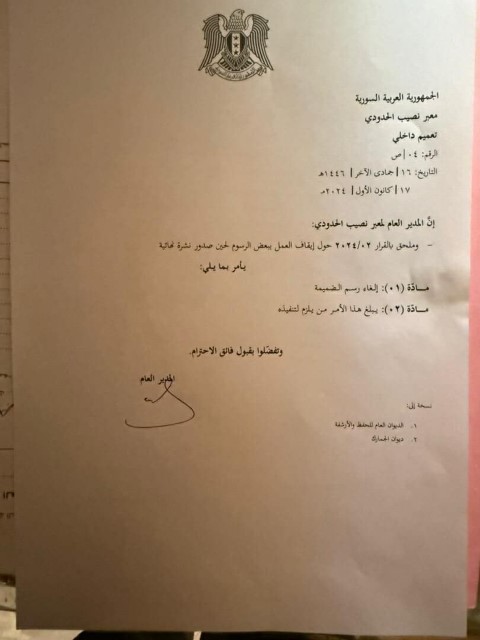 الجمهورية العربية السورية
معبر نصيب الحدودي
تعميم داخلي
الرقم: ٠٤ | ص
التاريخ: ١٦ | جمادى الآخر | ١٤٤٦هـ
١٧ | كانون الأول | ٢٠٢٤مـ
إنَّ المدير العام لمعبر نصيب الحدودي:
- وملحق بالقرار ٢٠٢٤/٠٢ حول إيقاف العمل ببعض الرسوم لحين صدور نشرة نهائية
يأمر بما يلي:
مـادّة (٠١): إلغاء رسم الضميمة
مـادّة (٠٢): يبلغ هذا الأمـر من يلزم لتنفيذه
وتفضّلوا بقبول فائق الاحترام.
المدير العام
نسخة إلى:
١. الديوان العام للحفظ والأرشفة
٢. ديوان الجمارك